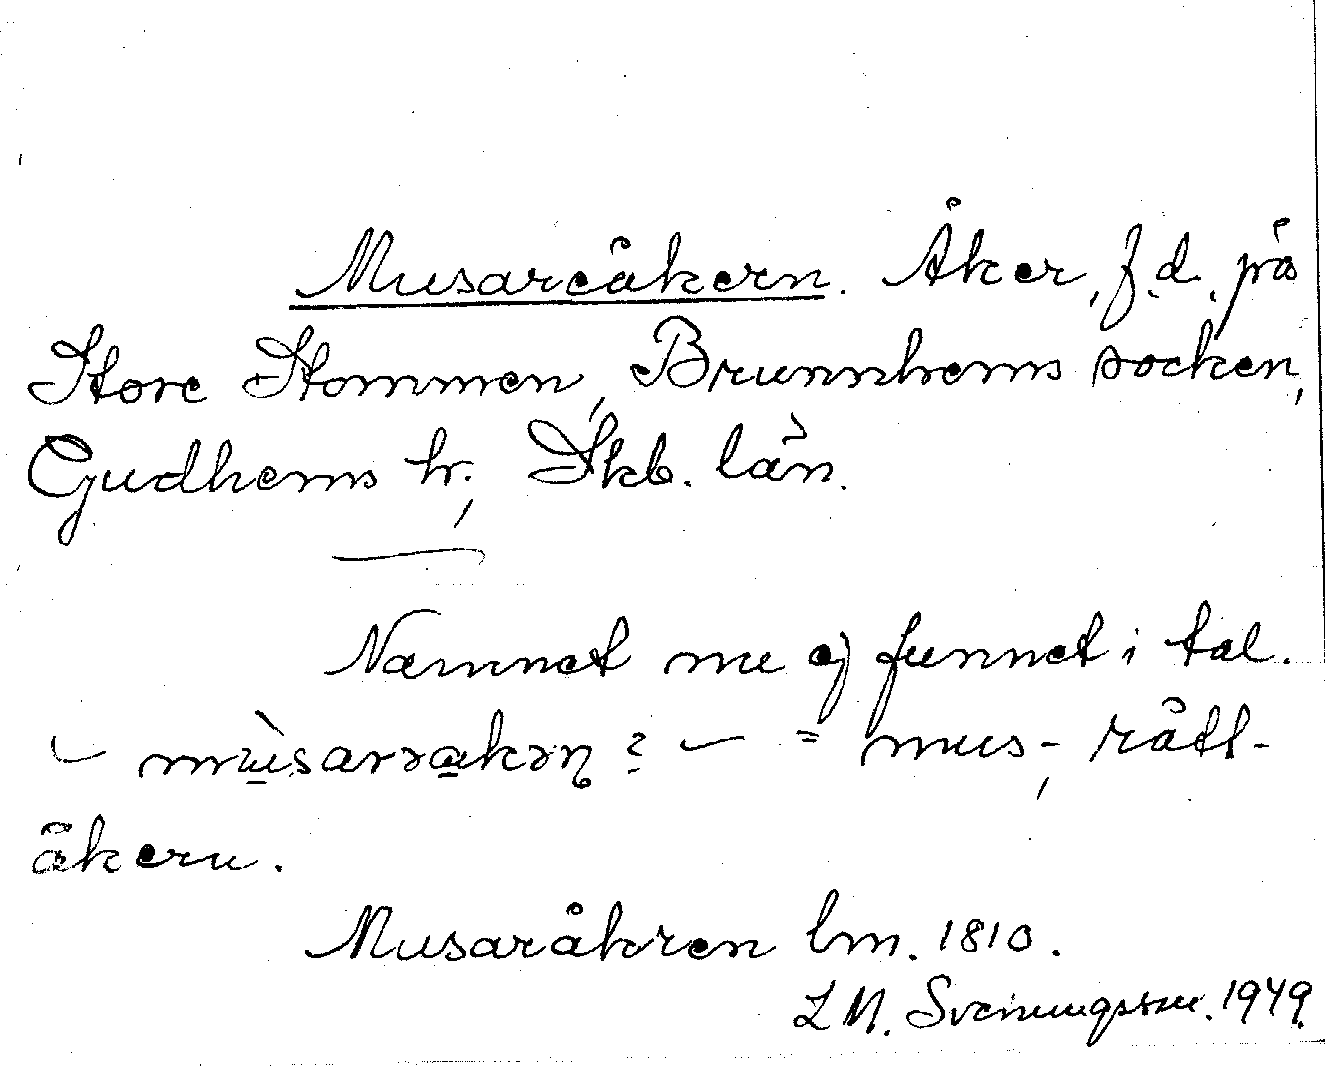 Musareåkern. Åker, f.d. på
Store Stommen, Brunnhems socken,
Gudhems hr., Skb. län.
Namnet nu ej funnet i tal.
– mùsarəakəɳ? – = mus-, rått-
åkern.
Musaråkren lm. 1810.
L M. Svenungsson. 1949.